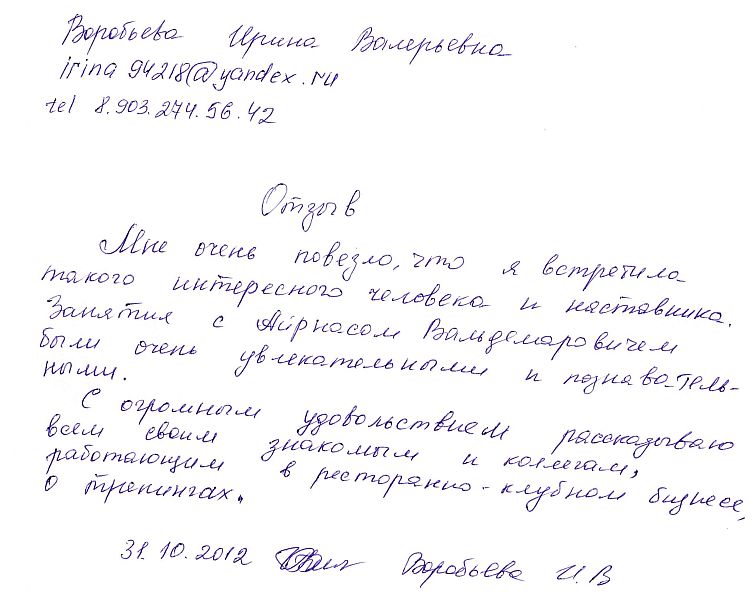 Воробьева Ирина Валерьевна
irina94218@yandex.ru
tel 8.903.274.56.42
Отзыв
Мне очень повезло, что я встретила
такого интересного человека и наставника.
Занятия с Айрнасом Вальдемаровичем
были очень увлекательными и познаватель-
ными.
С огромным удовольствием рассказываю
всем своим знакомым и коллегам,
работающим в ресторанно-клубном бизнесе,
о тренингах.
31.10.2012 Воробьева И.В